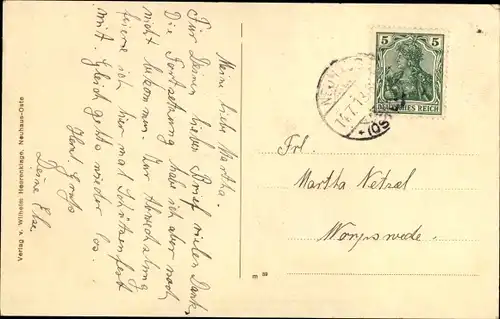 Meine liebe Martha
Für Deinen lieben Brief vielen Dank.
Die Fortsetzung habe ich aber noch
nicht bekommen. Zur Abwechslung
feiere ich hier mal Schützenfest
mit. Gleich geht's wieder los.
Herzl. Gruß
Deine Else
Verlag v. Wilhelm Heerenklage, Neuhaus-Oste
5 5
DEUTSCHES REICH
NEUHAUS
14.7.1
* (OS
Frl.
Martha Netzel
Worpswede.